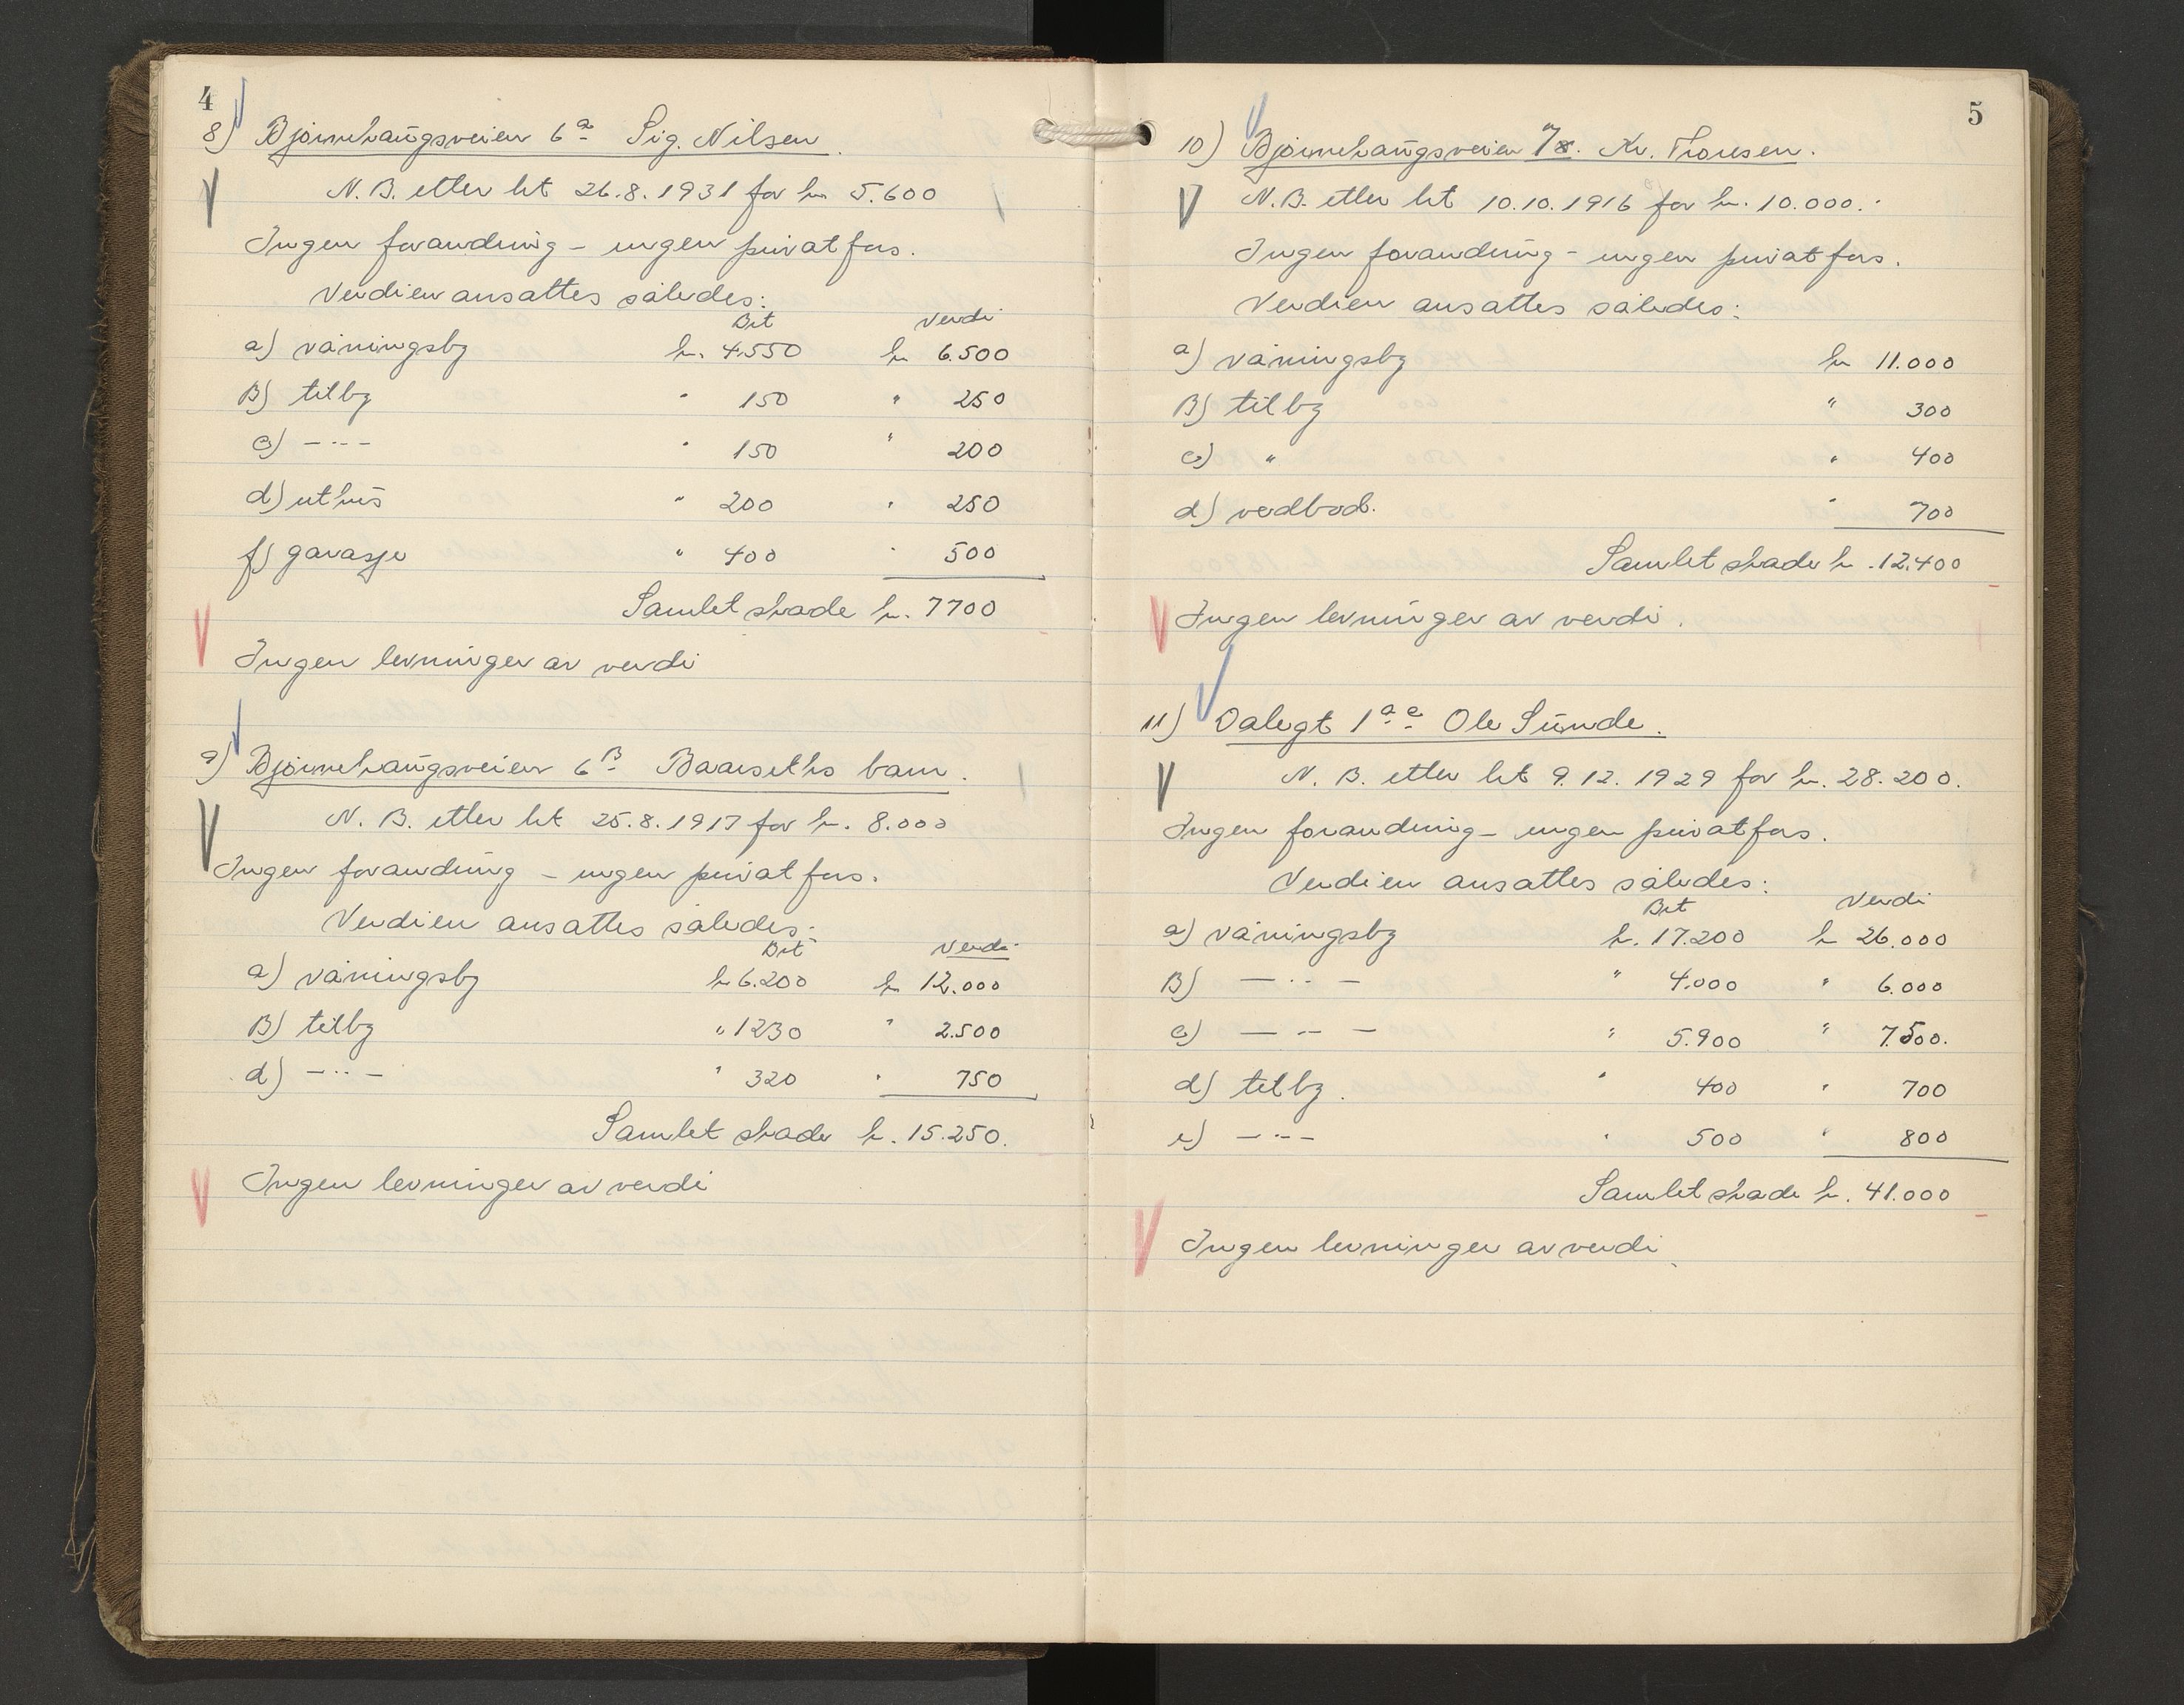 4
8) Bjørnehaugsveien 6a Sig. Nilsen.
N. B. etter bct 26.8.1931 for kr. 5.600
Ingen forandring – ingen privat fors.
Verdien ansattes således:
Bct Verdi
a) våningsby kr. 4.550 kr 6.500
B) tilby " 150 " 250
c) –"– " 150 " 200
d) uthus " 200 " 250
f) garasje " 400 " 500
Samlet skade kr. 7700
Ingen levninger av verdi
9) Bjørnehaugsveien 6B Baarseths barn.
N. B. etter bct 25.8.1917 for kr. 8.000
Ingen forandring – ingen privat fors.
Verdien ansattes således:
Bct Verdi
a) våningsby kr 6.200 kr 12.000
B) tilby " 1230 " 2.500
d) –"– " 320 " 750
Samlet skade kr. 15.250.
Ingen levninger av verdi
5
10) Bjørnehaugsveien 7. Kr. Thoresen.
N.B. etter bct 10.10.1916 for kr. 10.000.
Ingen forandring – ingen privat fors.
Verdien ansattes således:
a) våningsby kr 11.000
B) tilby " 300
c) " " 400
d) vedbod. " 700
Samlet skade kr. 12.400
Ingen levninger av verdi.
11) Dalegt 1a e Ole Sunde.
N. B. etter bct 9.12.1929 for kr. 28.200.
Ingen forandring – ingen privat fors.
Verdien ansattes således:
Bct Verdi
a) våningsby kr. 17.200 kr 26.000
B) –"– " 4.000 " 6.000
c) –"– " 5.900 " 7.500.
d) tilby. " 400 " 700
e) –"– " 500 " 800
Samlet skade kr. 41.000
Ingen levninger av verdi.